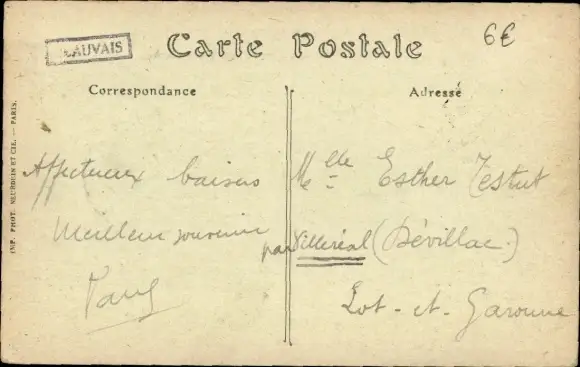 BEAUVAIS
Carte Postale
6€
Correspondance
Adressé
IMP. PHOT. NEURDEIN ET CIE. — PARIS.
Affectueux baisers
Meilleur souvenir
Paul
Mlle Esther Testut
par Villeréal (Dévillac)
Lot-et-Garonne